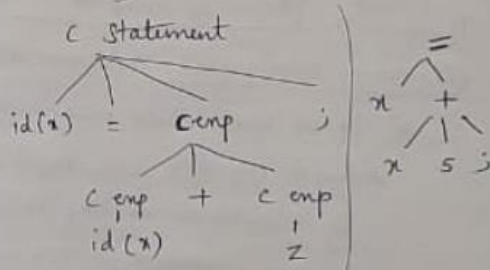 C statement
id(x) = C enp ;
C enp + C enp
id(x) z
=
x +
x 5 ;